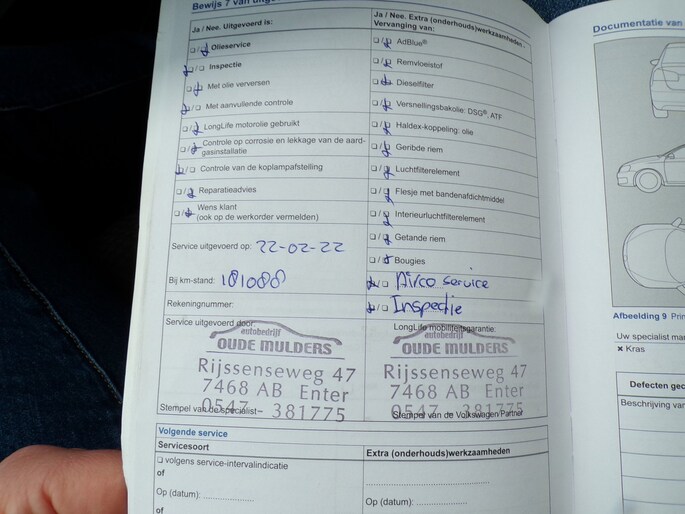 Bewijs 7 van
Ja / Nee. Uitgevoerd is:
Olieservice
Inspectie
Met olie verversen
Met aanvullende controle
LongLife motorolie gebruikt
Controle op corrosie en lekkage van de aard-
gasinstallatie
Controle van de koplampafstelling
Reparatieadvies
Wens klant
(ook op de werkorder vermelden)
Service uitgevoerd op: 22-02-22
Bij km-stand: 181088
Rekeningnummer:
Service uitgevoerd door
autobedrijf
OUDE MULDERS
Rijssenseweg 47
7468 AB Enter
0547 - 381775
Stempel van de specialist
Ja / Nee. Extra (onderhouds)werkzaamheden -
Vervanging van:
AdBlue®
Remvloeistof
Dieselfilter
Versnellingsbakolie: DSG®, ATF
Haldex-koppeling: olie
Geribde riem
Luchtfilterelement
Flesje met bandenafdichtmiddel
Interieurluchtfilterelement
Getande riem
Bougies
Airco service
Inspectie
LongLife mobiliteitsgarantie:
autobedrijf
OUDE MULDERS
Rijssenseweg 47
7468 AB Enter
0547 - 381775
Stempel van de Volkswagen Partner
Volgende service
Servicesoort
volgens service-intervalindicatie
of
Op (datum):
of
Extra (onderhouds)werkzaamheden
Op (datum):
Documentatie van
Afbeelding 9
Uw specialist
× Kras
Defecten
Beschrijving